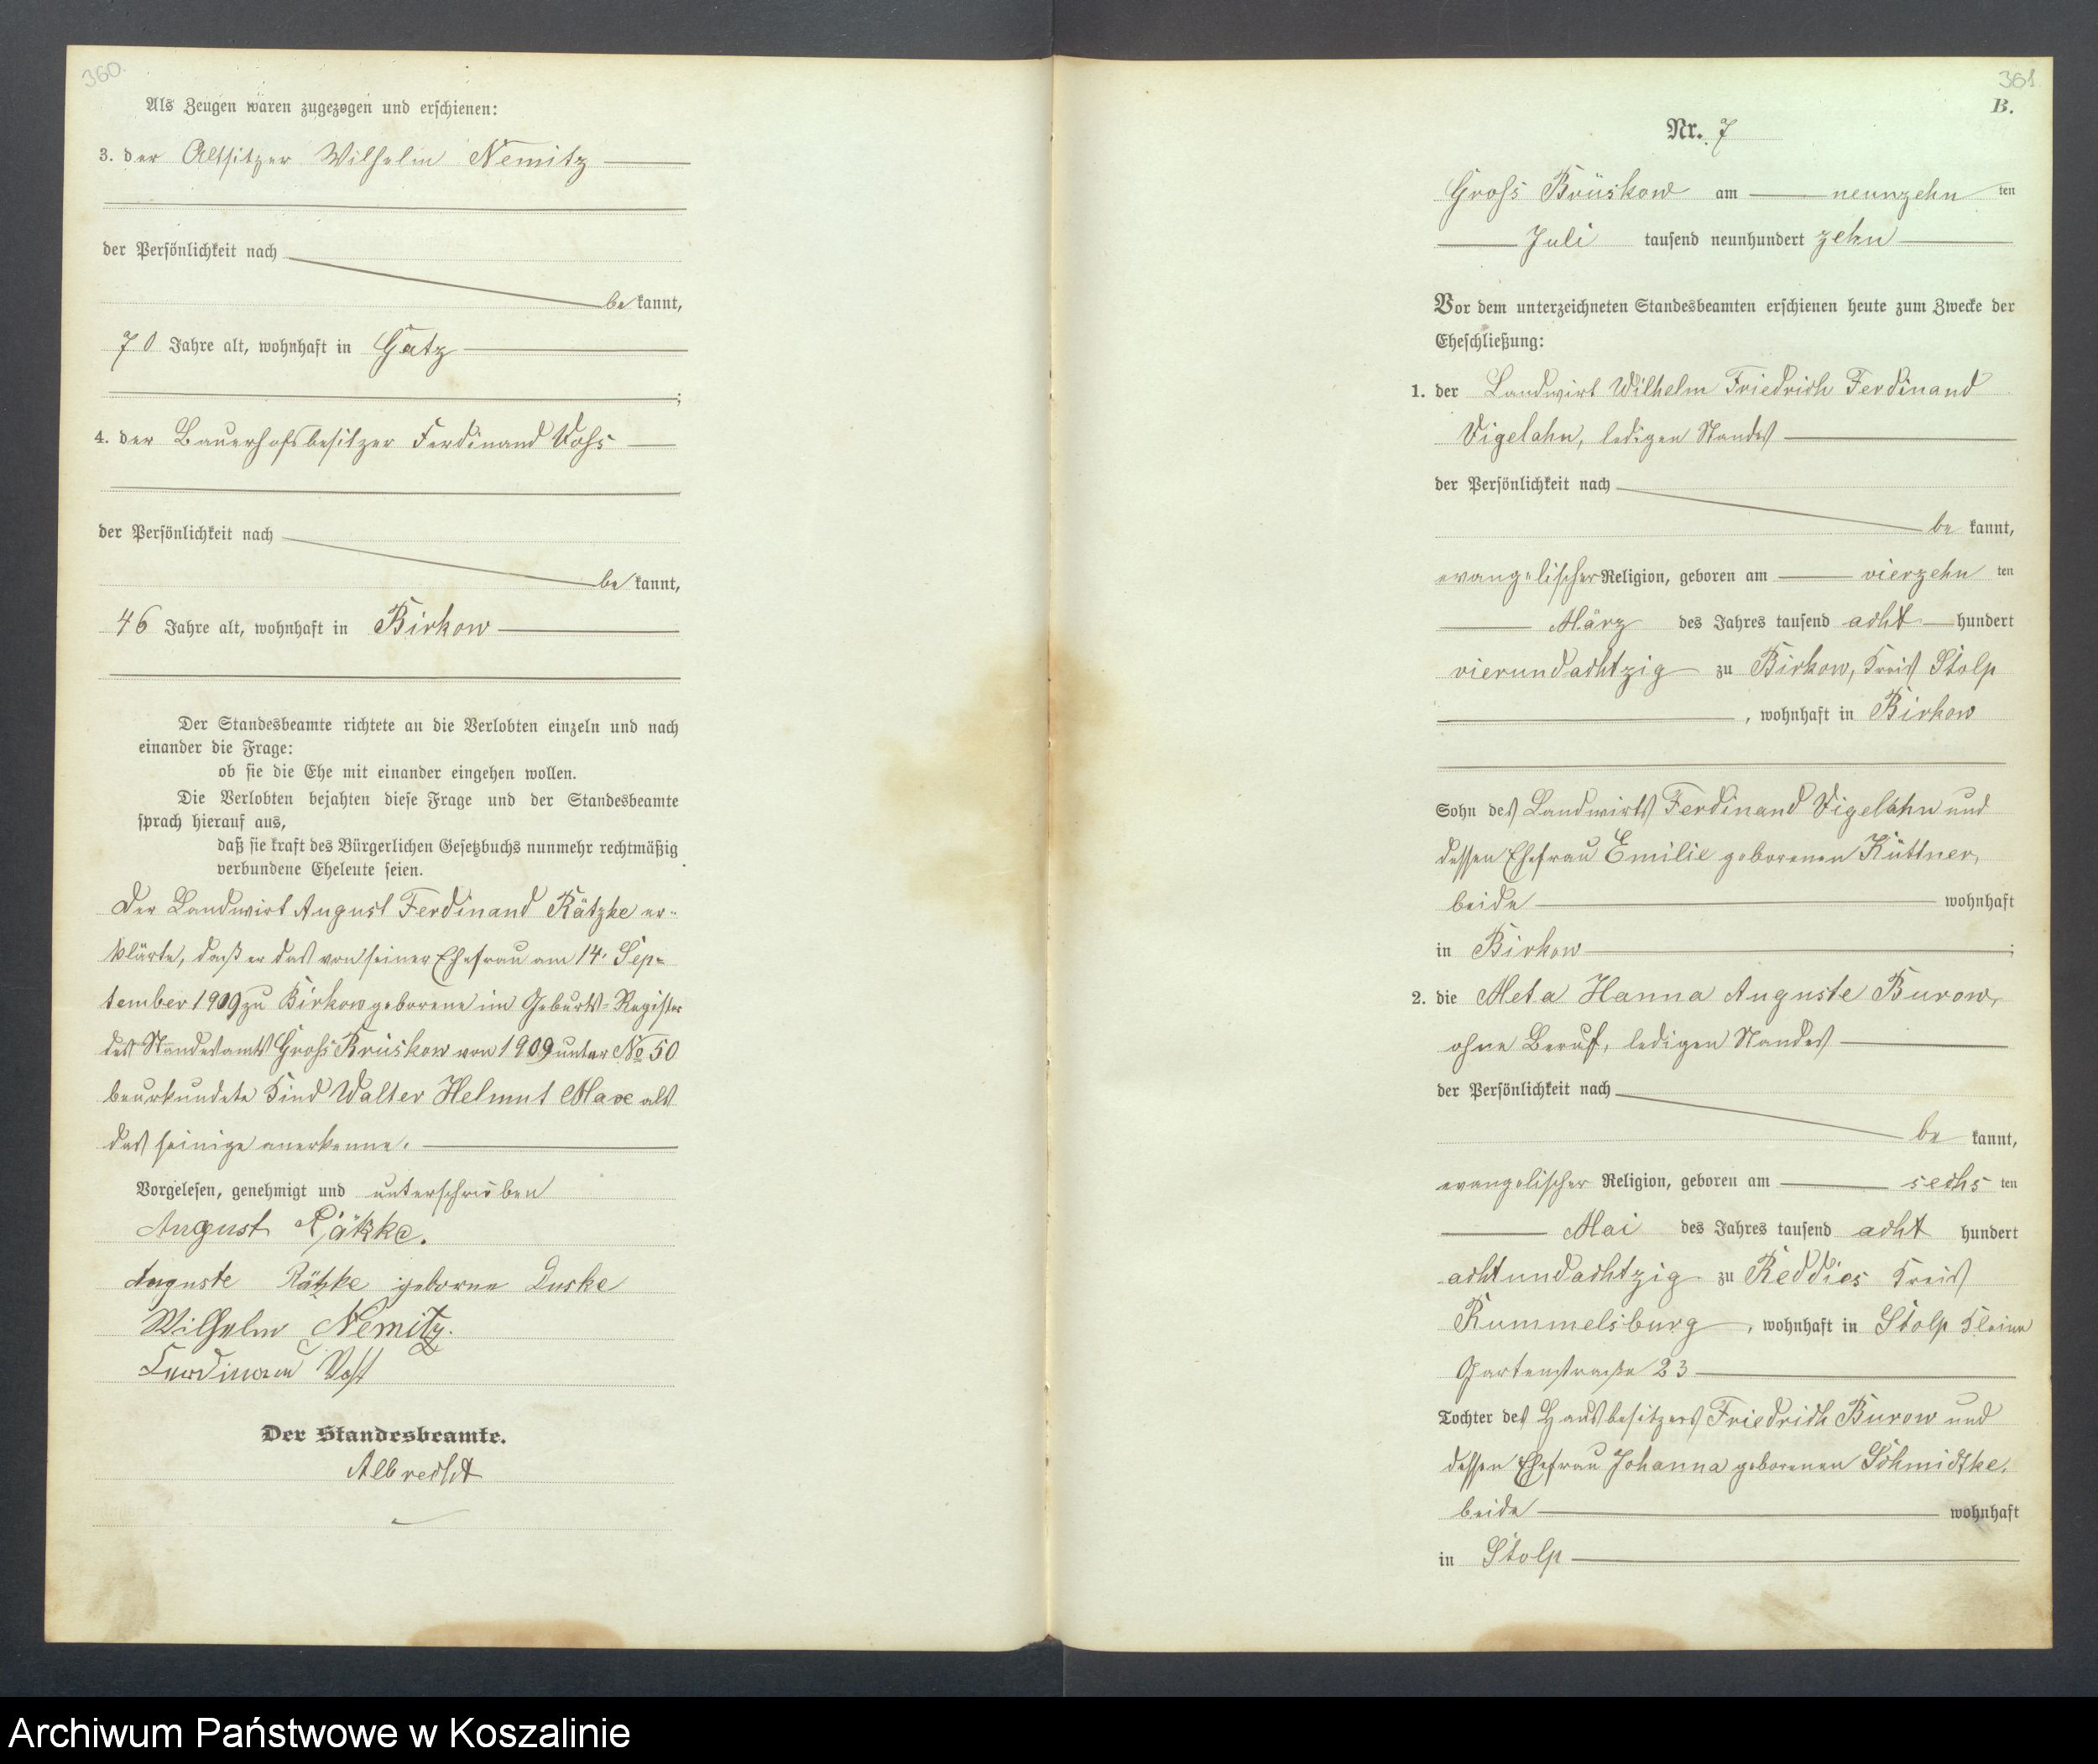 360.
Als Zeugen waren zugezogen und erschienen:
3. der Altsitzer Wilhelm Nemitz
der Persönlichkeit nach
be kannt,
70 Jahre alt, wohnhaft in Gatz
;
4. der Bauerhofsbesitzer Ferdinand Vohs
der Persönlichkeit nach
be kannt,
46 Jahre alt, wohnhaft in Birkow
Der Standesbeamte richtete an die Verlobten einzeln und nach
einander die Frage:
ob sie die Ehe mit einander eingehen wollen.
Die Verlobten bejahten diese Frage und der Standesbeamte
sprach hierauf aus,
daß sie kraft des Bürgerlichen Gesetzbuchs nunmehr rechtmäßig
verbundene Eheleute seien.
Der Landwirt August Ferdinand Rätzke er-
klärte, daß er das von seiner Ehefrau am 14. Sep-
tember 1909 zu Birkow geborene im Geburts-Register
des Standesamts Gross Brüskow von 1909 unter No 50
beurkundete Kind Walter Helmut Max als
das seinige anerkenne.
Vorgelesen, genehmigt und unterschrieben
August Rätzke.
Auguste Rätzke geborne Luske
Wilhelm Nemitz.
Ferdinand Vohs
Der Standesbeamte.
Albrecht
361
B.
Nr. 7
Gross Brüskow am neunzehn ten
Juli tausend neunhundert zehn
Vor dem unterzeichneten Standesbeamten erschienen heute zum Zwecke der
Eheschließung:
1. der Landwirt Wilhelm Friedrich Ferdinand
Vigelahn, ledigen Standes
der Persönlichkeit nach
be kannt,
evangelischer Religion, geboren am vierzehn ten
März des Jahres tausend acht hundert
vierundachtzig zu Birkow, Kreis Stolp
, wohnhaft in Birkow
Sohn des Landwirts Ferdinand Vigelahn und
dessen Ehefrau Emilie geborenen Küttner,
beide wohnhaft
in Birkow ;
2. die Meta Hanna Auguste Burow,
ohne Beruf, ledigen Standes
der Persönlichkeit nach
be kannt,
evangelischer Religion, geboren am sechs ten
Mai des Jahres tausend acht hundert
achtundachtzig zu Reddies Kreis
Rummelsburg, wohnhaft in Stolp Kleine
Gartenstraße 23
Tochter des Hausbesitzers Friedrich Burow und
dessen Ehefrau Johanna geborenen Schmidtke,
beide wohnhaft
in Stolp
Archiwum Państwowe w Koszalinie